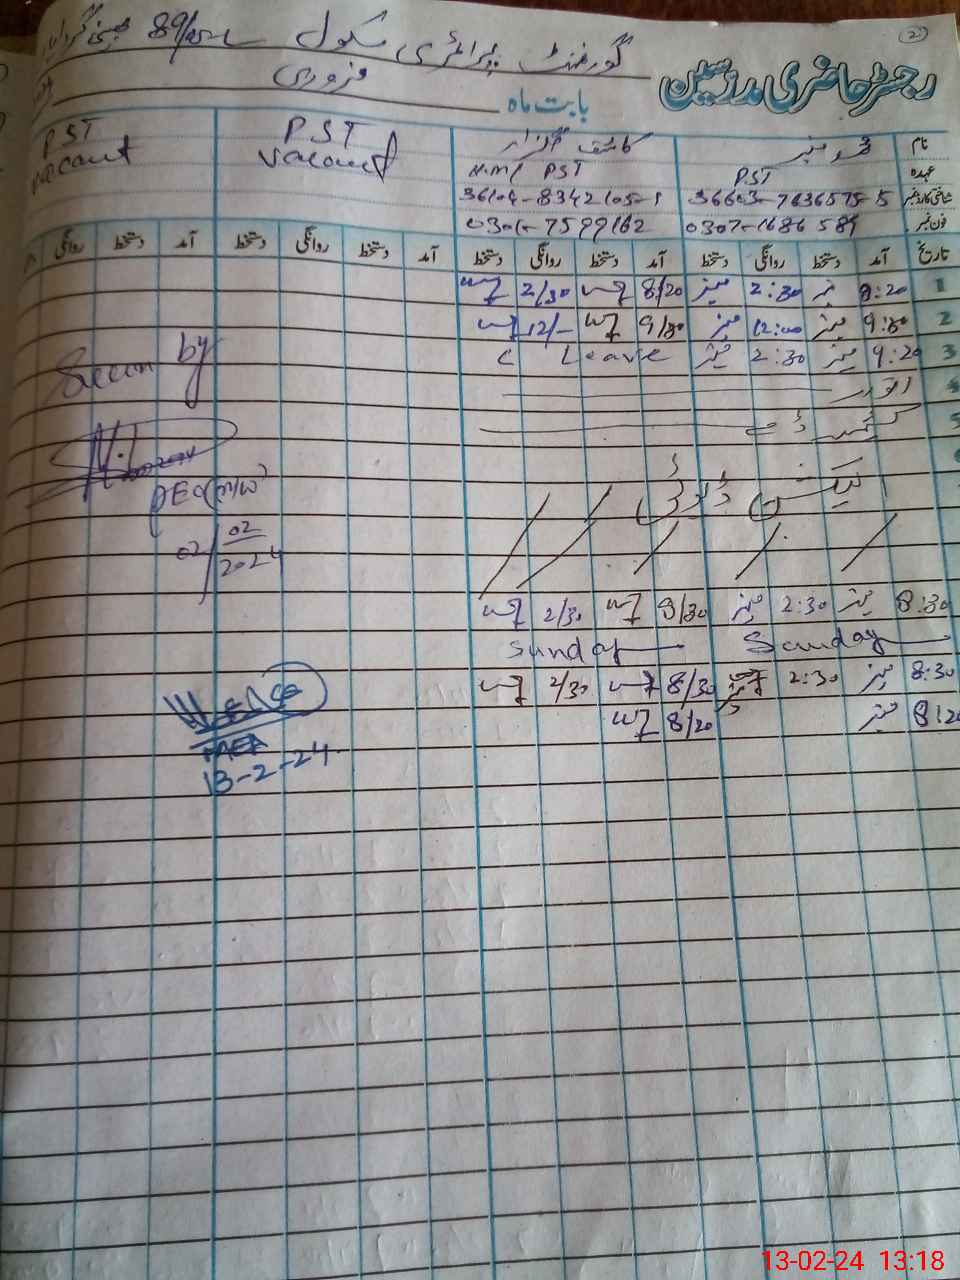 رجسٹر حاضری مدرسین
گورنمنٹ پرائمری سکول
بابت ماہ فروری
نام محمد منیر کاشف گلزار PST vacant PST vacant
عہدہ PST H.M/ PST
شناختی کارڈ نمبر 36603-7636575-5 36104-8342105-1
فون نمبر 0307-1686589 0301-7599162
تاریخ آمد دستخط روانگی دستخط آمد دستخط روانگی دستخط آمد دستخط روانگی دستخط آمد دستخط روانگی
1 8:20 منیر 2:30 منیر 8/20 2/30
2 9:30 منیر 12:00 منیر 9/30 12/-
3 9:20 منیر 2:30 منیر C Leave
4 اتوار
5 کشمیر ڈے
الیکشن ڈیوٹی
8:30 منیر 2:30 منیر 8/30 2/30
Sunday Sunday
8:30 منیر 2:30 8/30 2/30
8:20 منیر 8/20
Seen by
AEO(M/W)
02/02/2024
13-2-24
13-02-24 13:18